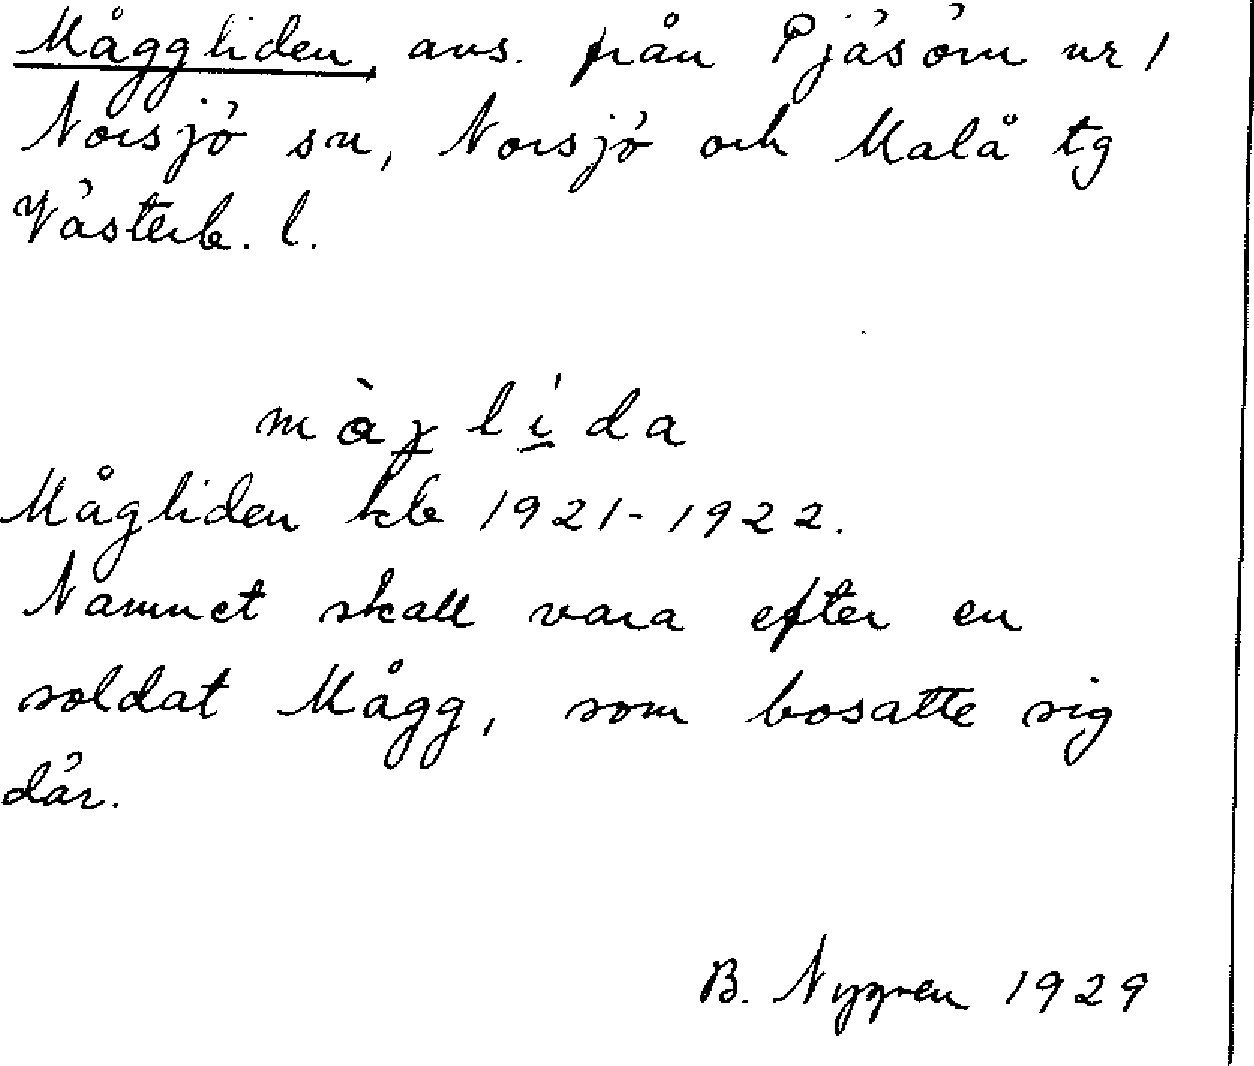 Måggliden, avs. från Pjäsörn nr 1
Norsjö sn, Norsjö och Malå tg
Västerb. l.
màg lí da
Mågliden kb 1921-1922.
Namnet skall vara efter en
soldat Mågg, som bosatte sig
där.
B. Nygren 1929